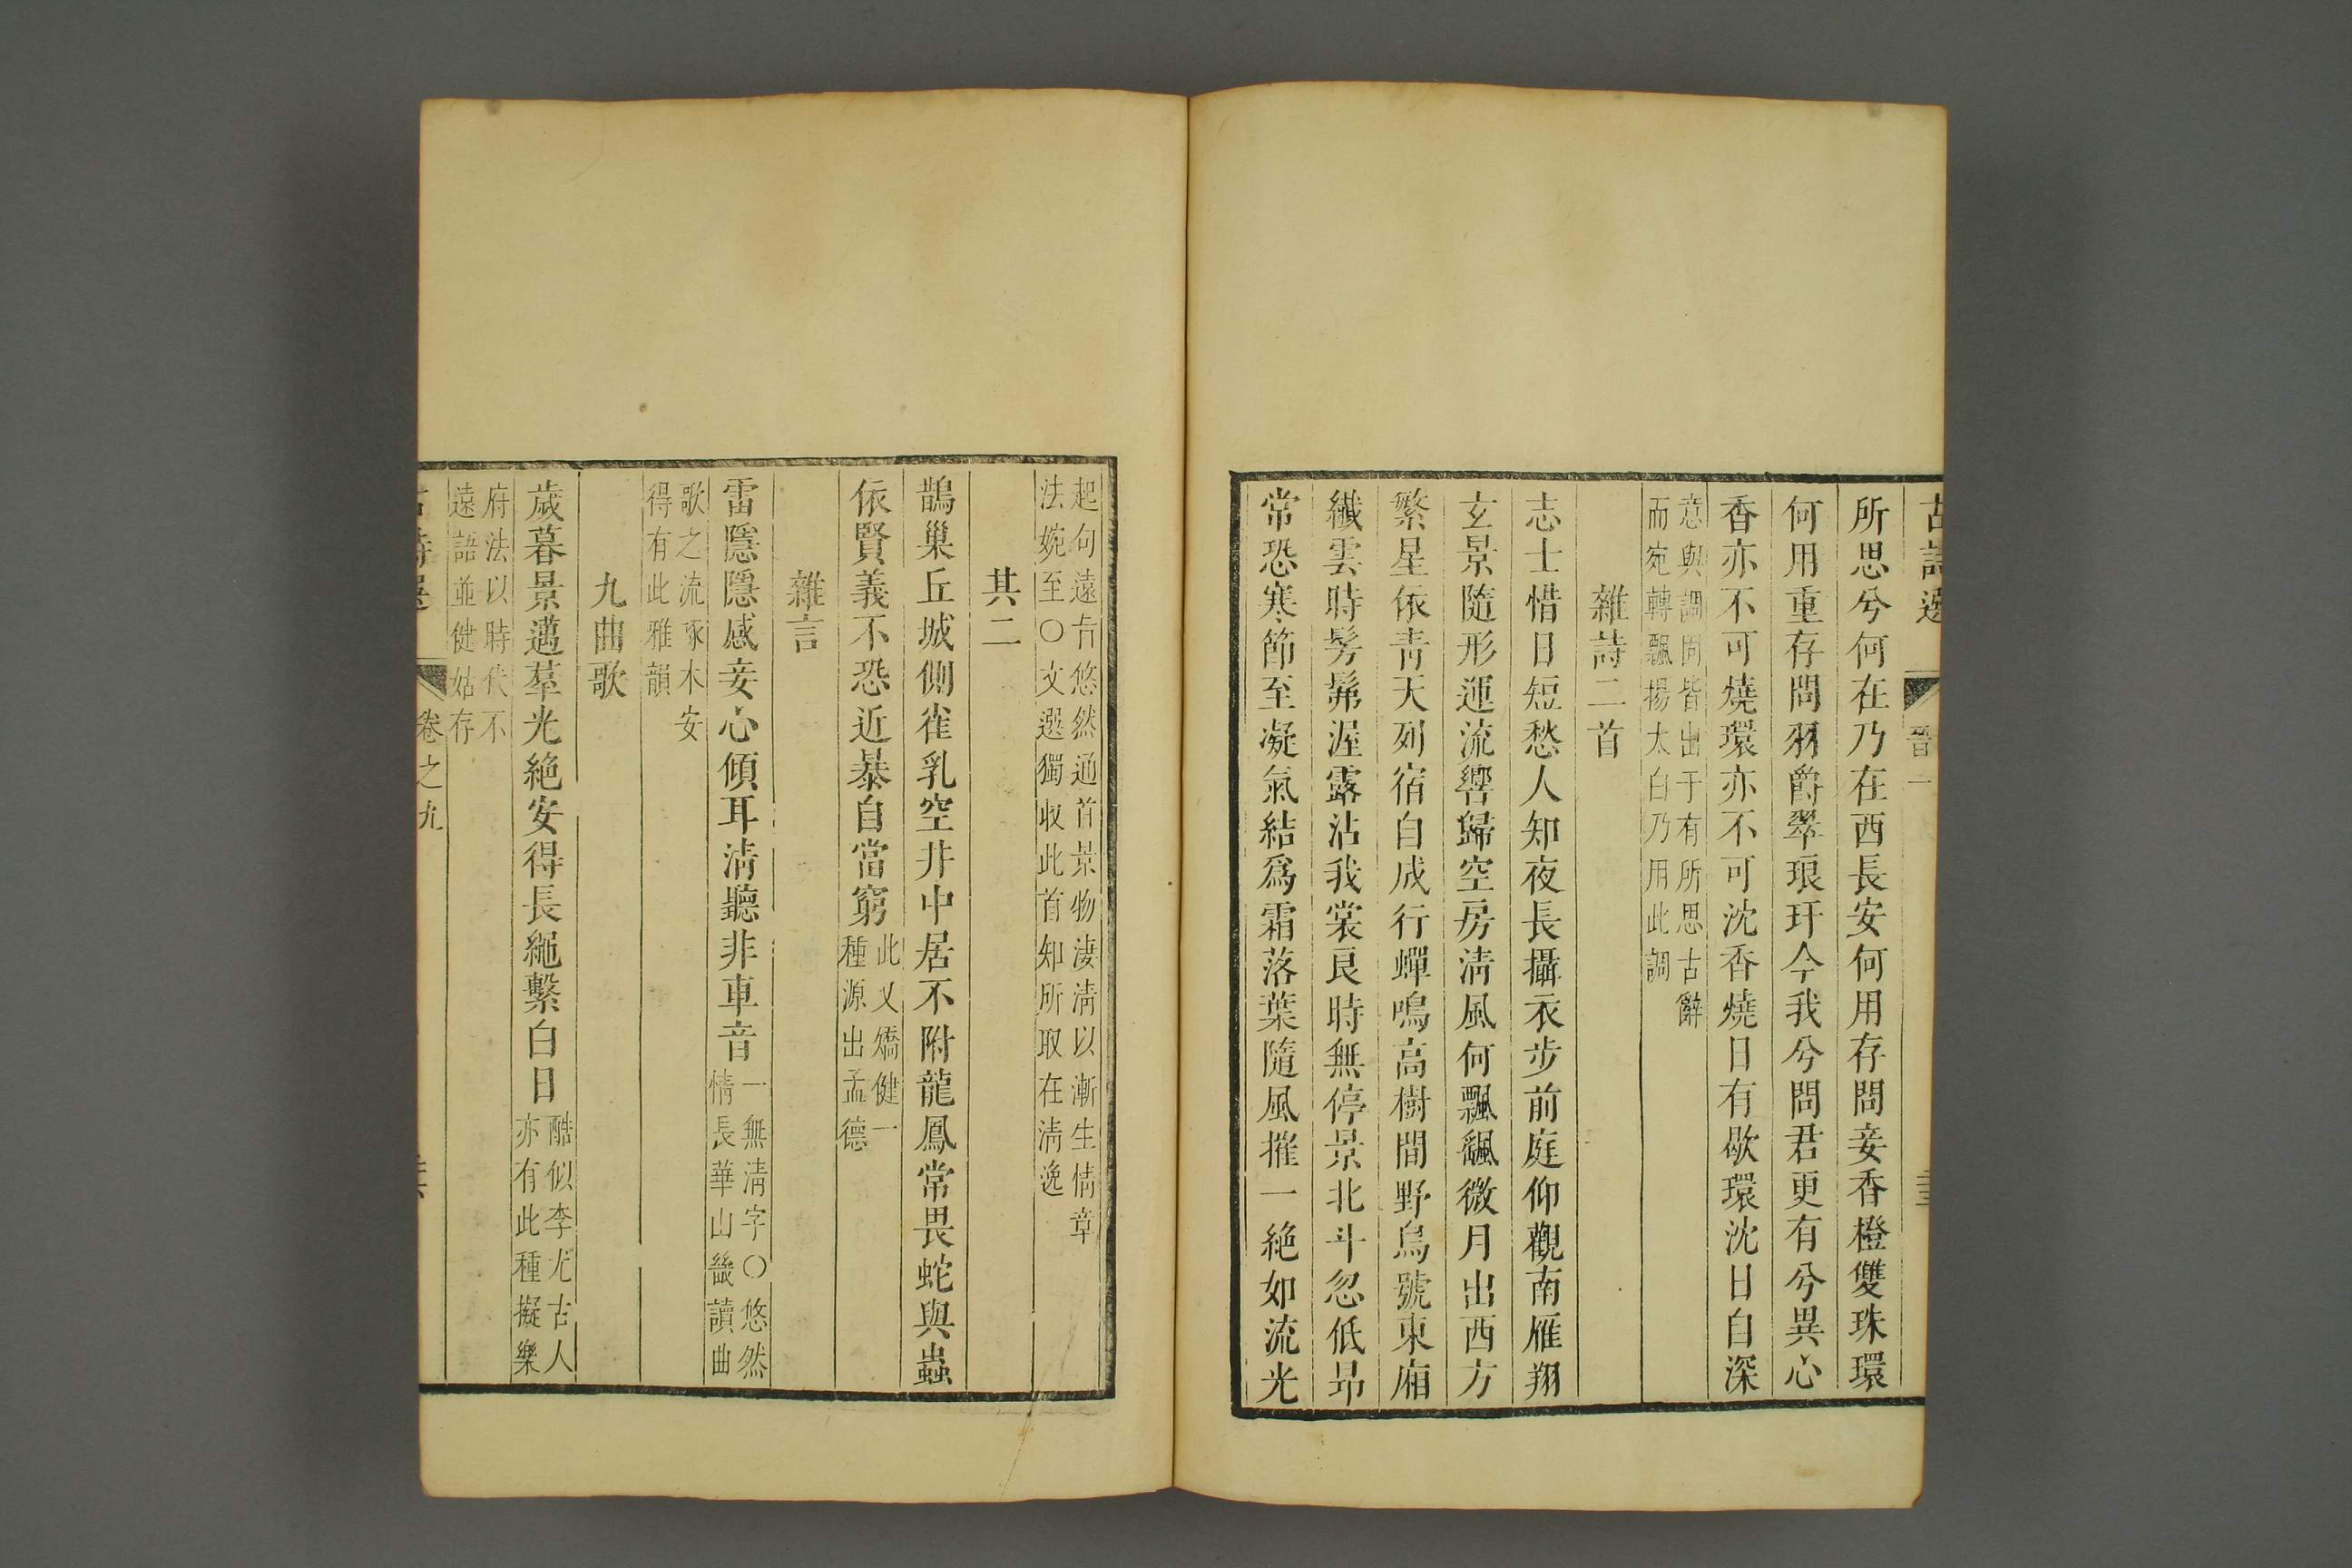 晉一
所思兮何在乃在西長安何用存問妾香橙雙珠環
何用重存問羽爵翠琅玕今我兮問君更有兮異心
香亦不可燒環亦不可沈香燒日有歇環沈日自深
意與調問皆出于有所思古辭
而宛轉飄揚太白乃用此調
雜詩二首
志士惜日短愁人知夜長攝衣步前庭仰觀南雁翔
玄景隨形運流響歸空房清風何飄颻微月出西方
繁星依青天列宿自成行蟬鳴高樹間野鳥號東廂
纖雲時髣髴渥露沾我裳良時無停景北斗忽低昂
常恐寒節至凝氣結爲霜落葉隨風摧一絶如流光
起句遠旨悠然通首景物淒清以漸生情章
法婉至○文選獨收此首知所取在清逸
其二
鵲巢丘城側雀乳空井中居不附龍鳳常畏蛇與蟲
依賢義不恐近暴自當窮
此乂矯健一
種源出孟德
雜言
雷隱隱感妾心傾耳清聽非車音
一無清字○悠然
情長華山畿讀曲
歌之流琢木安
得有此雅韻
九曲歌
歲暮景邁羣光絶安得長繩繫白日
酷似李尤古人
亦有此種擬樂
府法以時代不
遠語並健姑存
卷之九